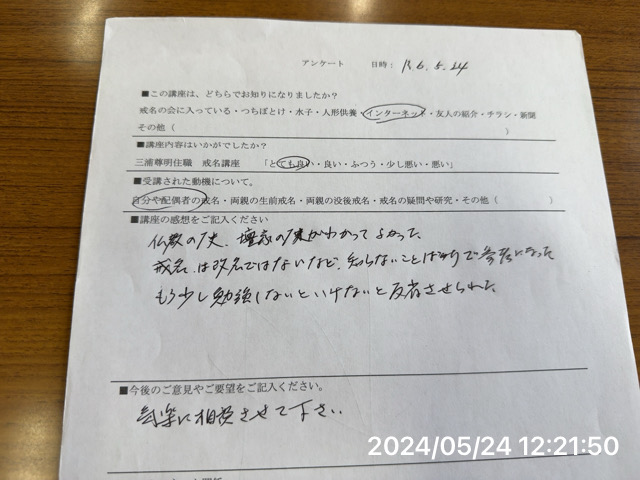 アンケート 日時：R6.5.24
■この講座は、どちらでお知りになりましたか？
戒名の会に入っている・つちぼとけ・水子・人形供養・インターネット・友人の紹介・チラシ・新聞
その他（ ）
■講座内容はいかがでしたか？
三浦尊明住職 戒名講座 「とても良い・良い・ふつう・少し悪い・悪い」
■受講された動機について。
自分や配偶者の戒名・両親の生前戒名・両親の没後戒名・戒名の疑問や研究・その他（ ）
■講座の感想をご記入ください
仏教の歴史、檀家の歴史がわかってよかった
戒名は改名ではないなど、知らないことばかりで参考になった
もう少し勉強しないといけないと反省させられた
■今後のご意見やご要望をご記入ください。
気楽に相談させて下さい
2024/05/24 12:21:50